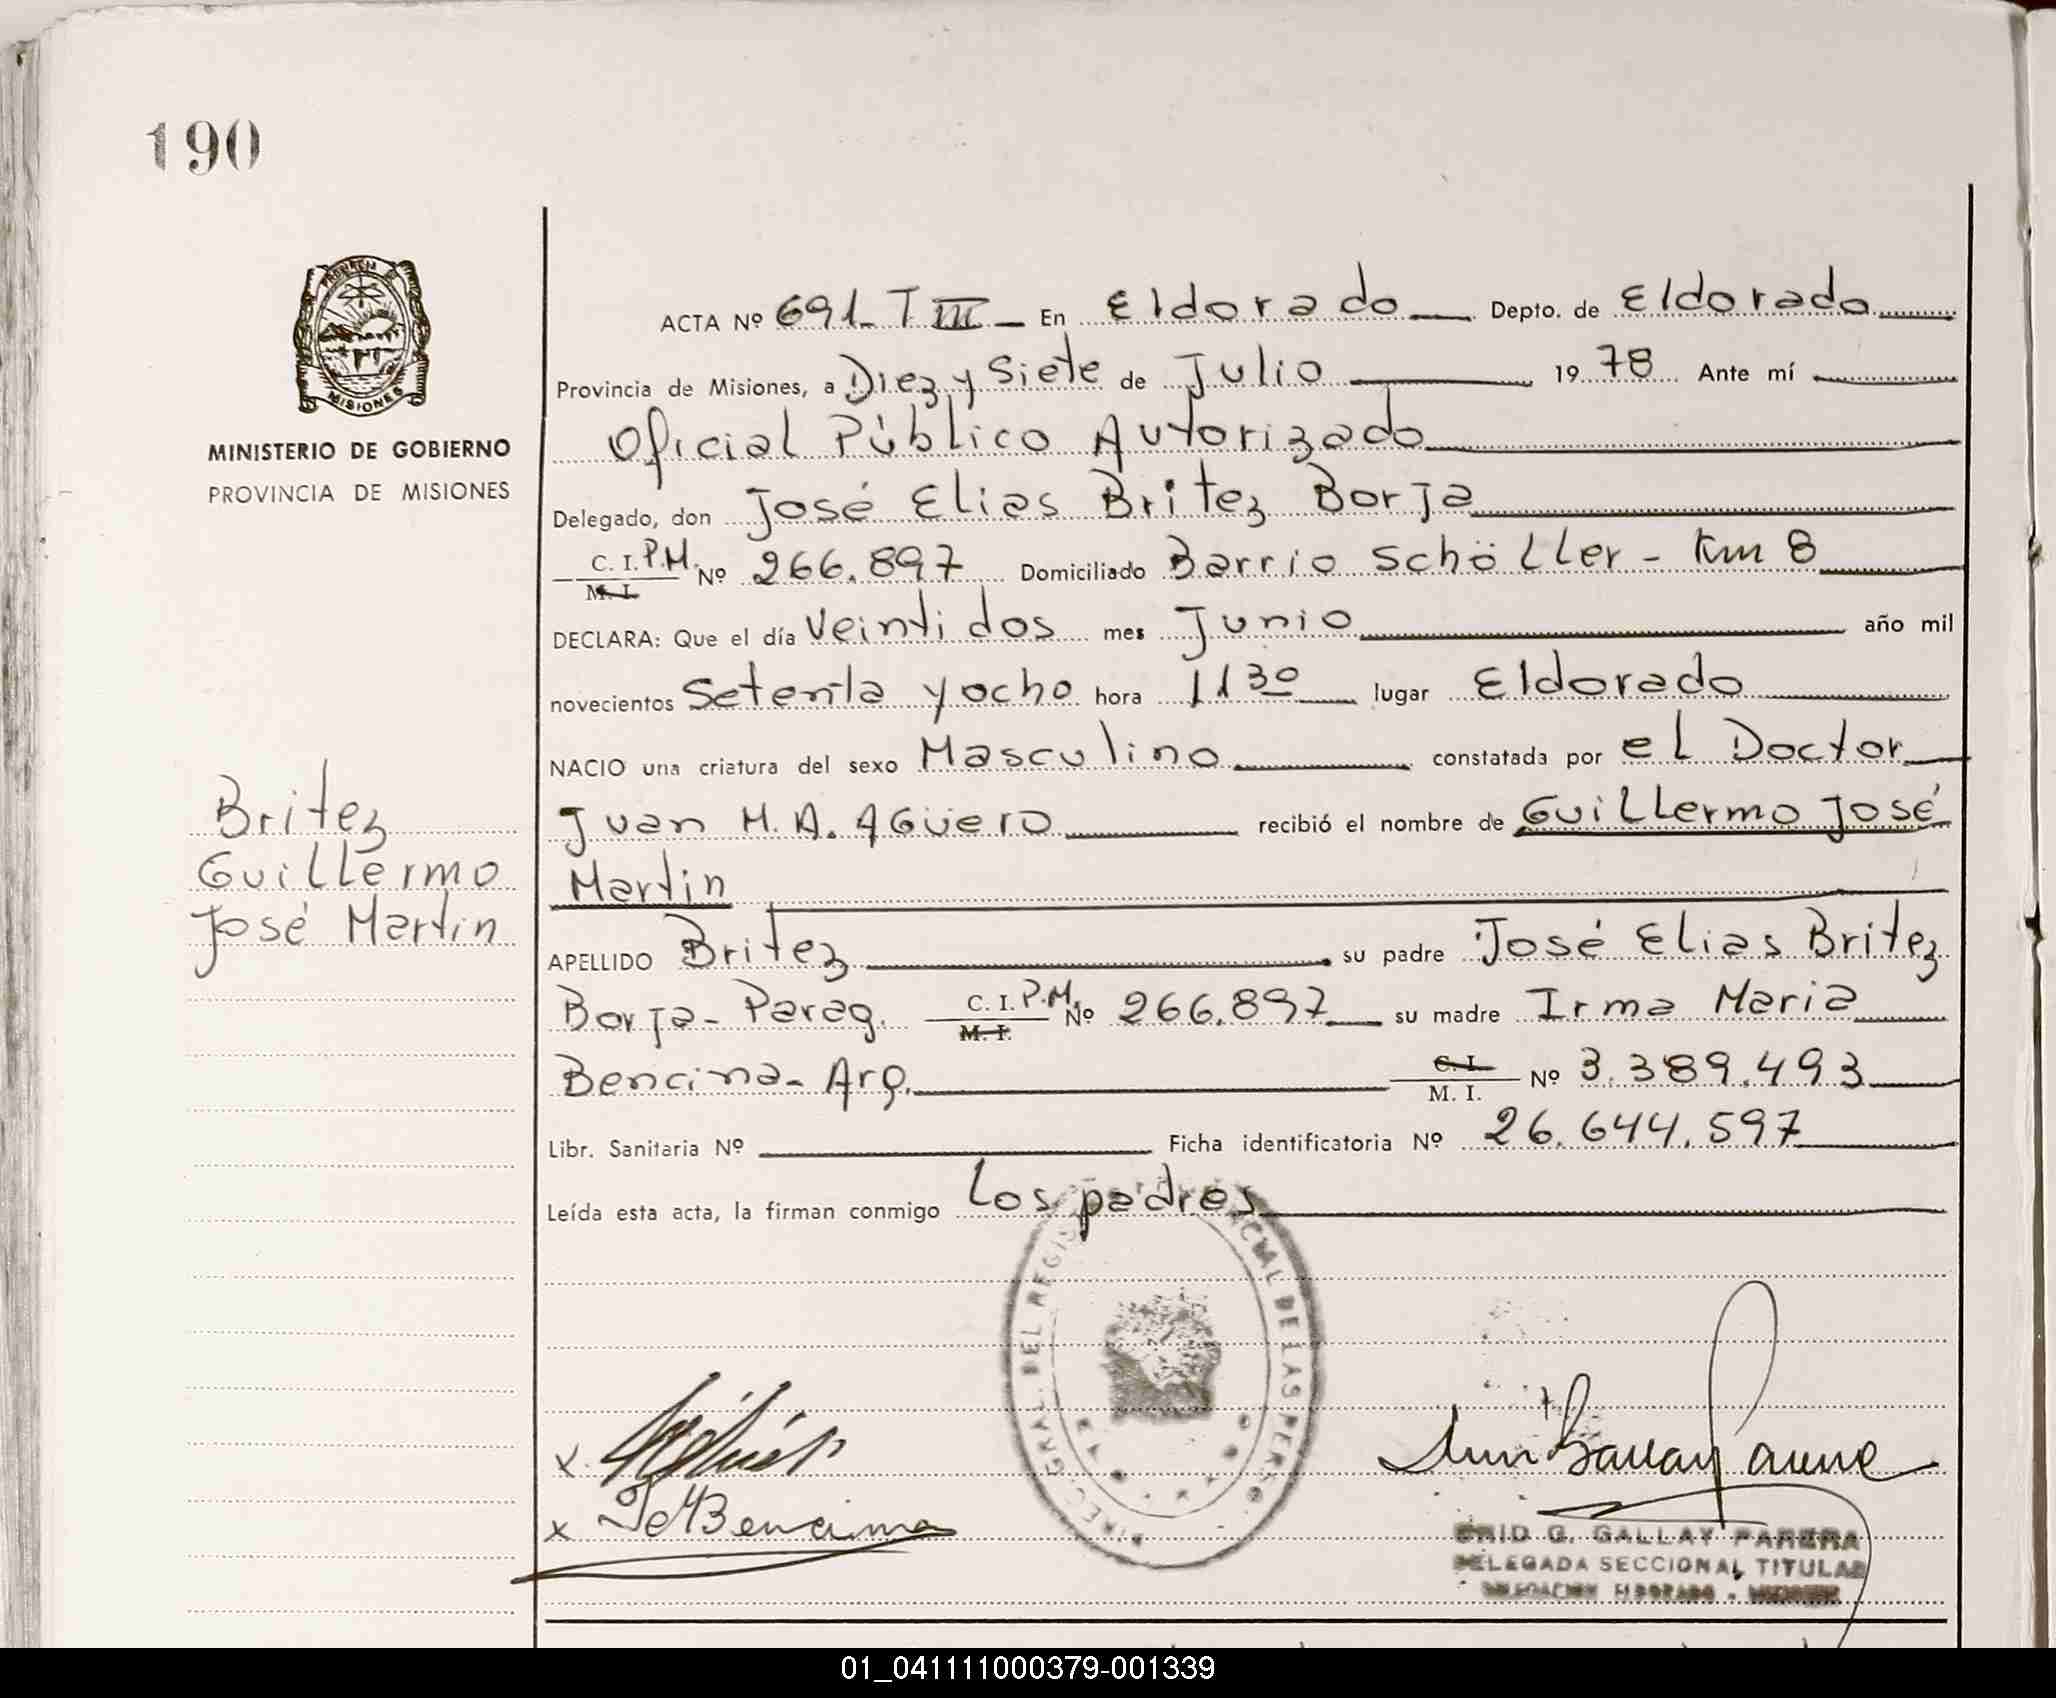 190
PROVINCIA
MISIONES
MINISTERIO DE GOBIERNO
PROVINCIA DE MISIONES
Britez
Guillermo
José Martin
ACTA Nº 691_ T III _ En Eldorado Depto. de Eldorado
Provincia de Misiones, a Diez y Siete de Julio 19 78 Ante mí
Oficial Público Autorizado
Delegado, don José Elias Britez Borja
C. I. P.M. Nº 266.897 Domiciliado Barrio Schöller - Km 8
M. I.
DECLARA: Que el día Veintidos mes Junio año mil
novecientos Setenta y ocho hora 11 30 lugar Eldorado
NACIO una criatura del sexo Masculino constatada por el Doctor
Juan M. A. Agüero recibió el nombre de Guillermo José
Martin
APELLIDO Britez su padre José Elias Britez
Borja - Parag. C. I. P.M. Nº 266.897 su madre Irma Maria
M. I.
Bencina - Arg. C. I. Nº 3.389.493
M. I.
Libr. Sanitaria Nº Ficha identificatoria Nº 26.644.597
Leída esta acta, la firman conmigo Los padres
DIREC. GRAL. DEL REGIS CIAL DE LAS PERSO
x
x Bencina
G. GALLAY PARERA
DELEGADA SECCIONAL TITULAR
DELEGACION ELDORADO - MISIONES
01_041111000379-001339